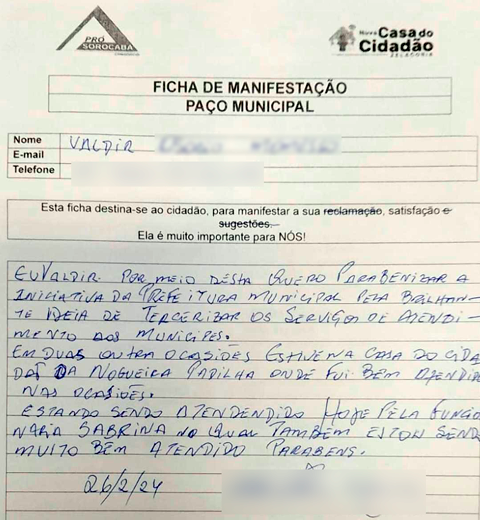 PRÓ
SOROCABA
Nova Casa do
Cidadão
FICHA DE MANIFESTAÇÃO
PAÇO MUNICIPAL
Nome VALDIR
E-mail
Telefone
Esta ficha destina-se ao cidadão, para manifestar a sua reclamação, satisfação e
sugestões.
Ela é muito importante para NÓS!
EU VALDIR. POR MEIO DESTA QUERO PARABENIZAR A
INICIATIVA DA PREFEITURA MUNICIPAL PELA BRILHAN-
TE IDEIA DE TERCERIZAR OS SERVIÇOS DE ATENDI-
MENTO AOS MUNICIPES.
EM DUAS OUTRA OCASIÕES ESTIVE NA CASA DO CIDA
DAÕ DA NOGUEIRA PADILHA ONDE FUI BEM ATENDIDO
NAS OCASIÕES.
ESTANDO SENDO ATENDENDIDO HOJE PELA FUNCIO
NARIA SABRINA NO QUAL TAMBEM ESTOU SENDO
MUITO BEM ATENDIDO PARABENS.
26/2/24